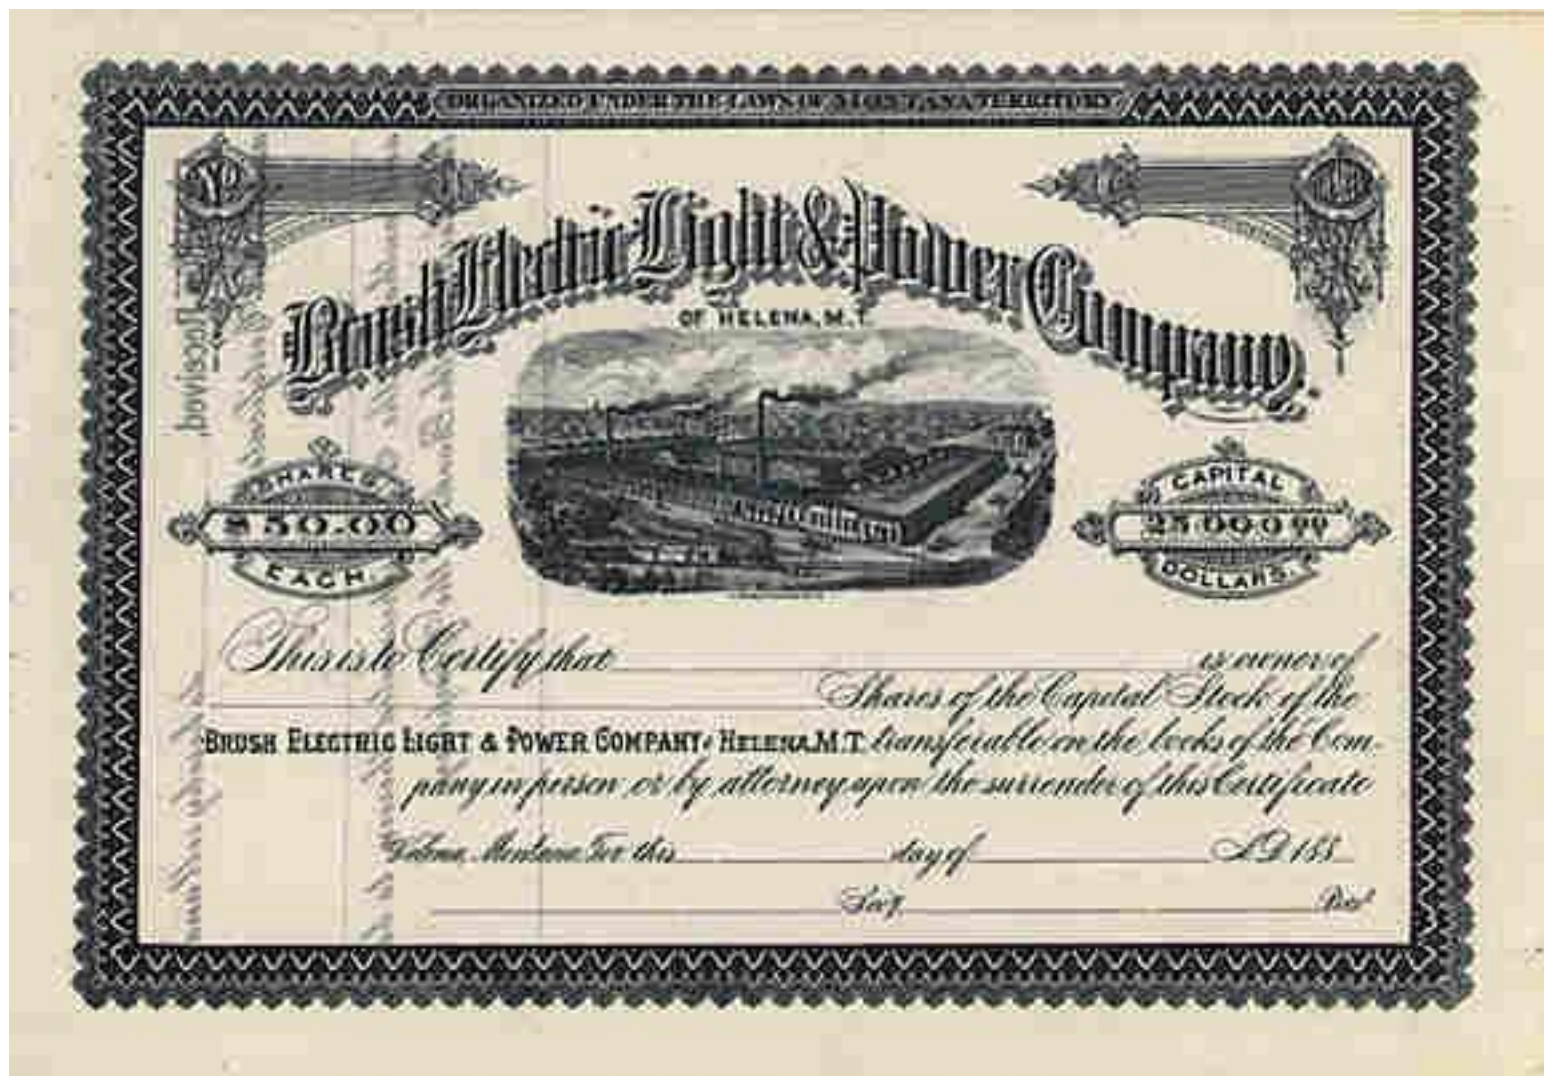 ORGANIZED UNDER THE LAWS OF MONTANA TERRITORY
No
Brush Electric Light & Power Company
OF HELENA, M.T.
SHARES
$50.00
EACH.
CAPITAL
25.000.00
DOLLARS.
This is to Certify that is owner of
Shares of the Capital Stock of the
BRUSH ELECTRIC LIGHT & POWER COMPANY, HELENA, M.T. transferable on the books of the Com-
pany in person or by attorney upon the surrender of this Certificate
Helena, Montana Ter this day of A.D. 188
Secy. Prest
Received,